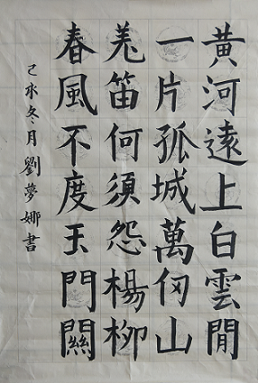 黃河遠上白雲閒
一片孤城萬仞山
羌笛何須怨楊柳
春風不度玉門關
己亥冬月劉夢娜書